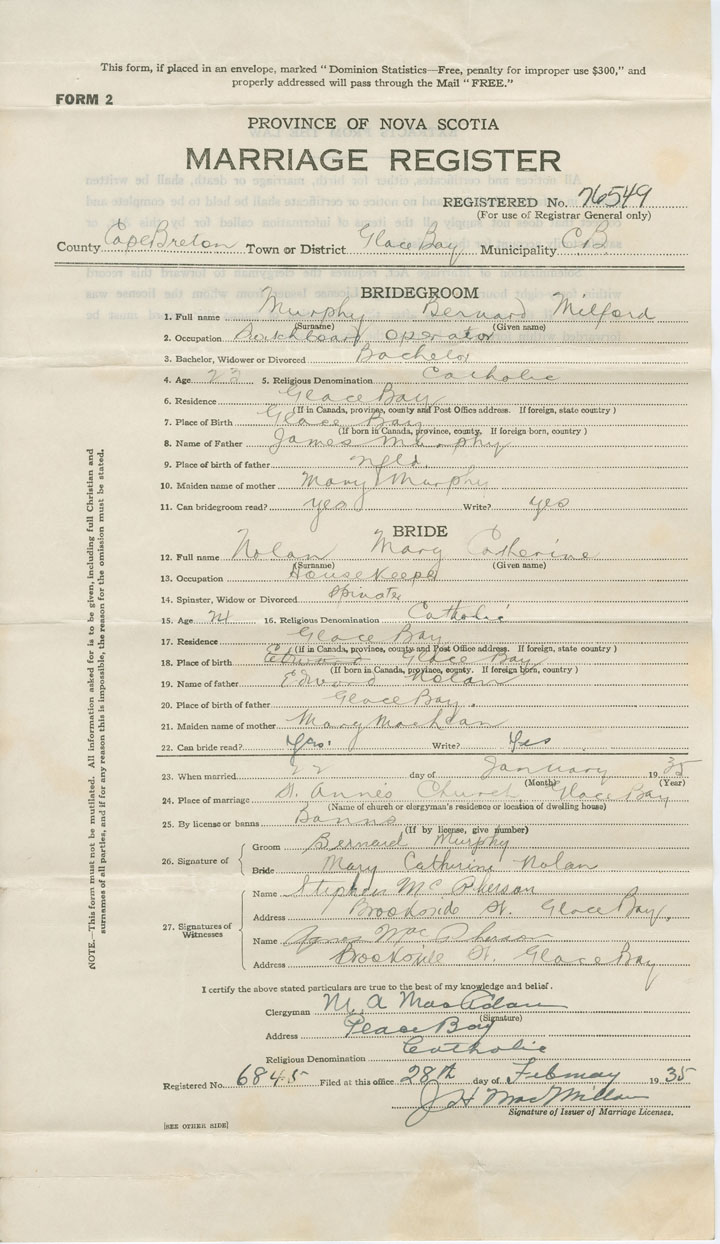 This form, if placed in an envelope, marked "Dominion Statistics—Free, penalty for improper use $300," and
properly addressed will pass through the Mail "FREE."
FORM 2
PROVINCE OF NOVA SCOTIA
MARRIAGE REGISTER
REGISTERED No. 76549
(For use of Registrar General only)
County Cape Breton Town or District Glace Bay Municipality C.B.
BRIDEGROOM
1. Full name Murphy Bernard Milford
(Surname) (Given name)
2. Occupation operator
3. Bachelor, Widower or Divorced Bachelor
4. Age 23 5. Religious Denomination Catholic
6. Residence Glace Bay
(If in Canada, province, county and Post Office address. If foreign, state country)
7. Place of Birth Glace Bay
(If born in Canada, province, county. If foreign born, country)
8. Name of Father James Murphy
9. Place of birth of father Nfld.
10. Maiden name of mother Mary Murphy
11. Can bridegroom read? yes Write? yes
BRIDE
12. Full name Nolan Mary Catherine
(Surname) (Given name)
13. Occupation Housekeeper
14. Spinster, Widow or Divorced Spinster
15. Age 16. Religious Denomination Catholic
17. Residence Glace Bay
(If in Canada, province, county and Post Office address. If foreign, state country)
18. Place of birth Glace Bay
(If born in Canada, province, county. If foreign born, country)
19. Name of father Edward Nolan
20. Place of birth of father Glace Bay.
21. Maiden name of mother Mary MacLean
22. Can bride read? Yes. Write? Yes
23. When married 22 day of January 1935
(Month) (Year)
24. Place of marriage St. Anne's Church, Glace Bay
(Name of church or clergyman's residence or location of dwelling house)
25. By license or banns Banns
(If by license, give number)
26. Signature of
Groom Bernard Murphy
Bride Mary Catherine Nolan
27. Signatures of Witnesses
Name Stephen McPherson
Address Brookside St. Glace Bay.
Name Agnes MacPherson
Address Brookside St. Glace Bay
I certify the above stated particulars are true to the best of my knowledge and belief.
Clergyman M. A. MacAdam
(Signature)
Address Glace Bay
Religious Denomination Catholic
Registered No. 6845 Filed at this office 28th day of February 1935
J H MacMillan
Signature of Issuer of Marriage Licenses.
[SEE OTHER SIDE]
NOTE.—This form must not be mutilated. All information asked for is to be given, including full Christian and
surnames of all parties, and if for any reason this is impossible, the reason for the omission must be stated.